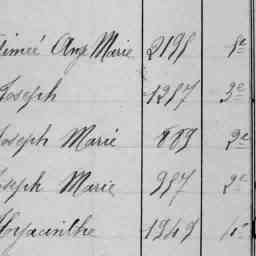 Aimée Ang Marie 2195 1e
Joseph 1257 3e
Joseph Marie 889 2e
Joseph Marie 957 2e
Hyacinthe 1949 4e